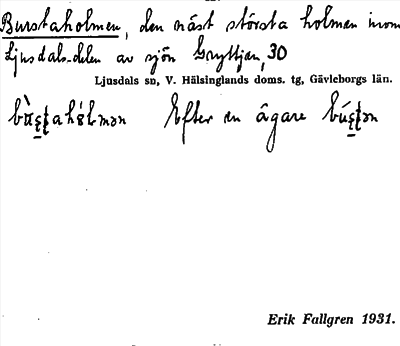 Burstaholmen, den näst största holmen inom
Ljusdals-delen av sjön Gryttjen, 30
Ljusdals sn, V. Hälsinglands doms. tg, Gävleborgs län.
Efter en ägare
Erik Fallgren 1931.